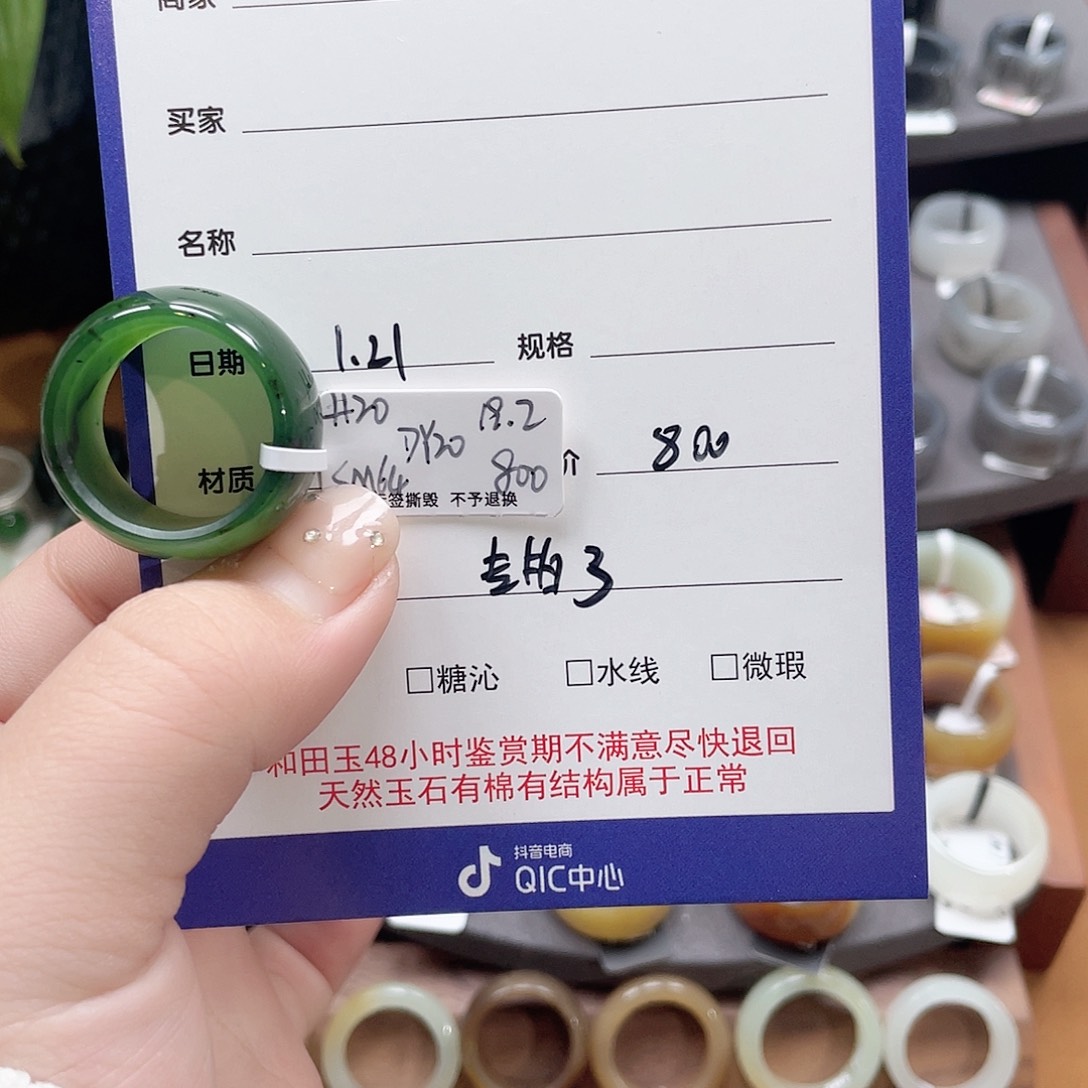 商家
买家
名称
日期 1.21 规格
#20 18.2
DY20
材质 800 价 800
签撕毁 不予退换
专拍3
□糖沁 □水线 □微瑕
和田玉48小时鉴赏期不满意尽快退回
天然玉石有棉有结构属于正常
抖音电商
QIC中心